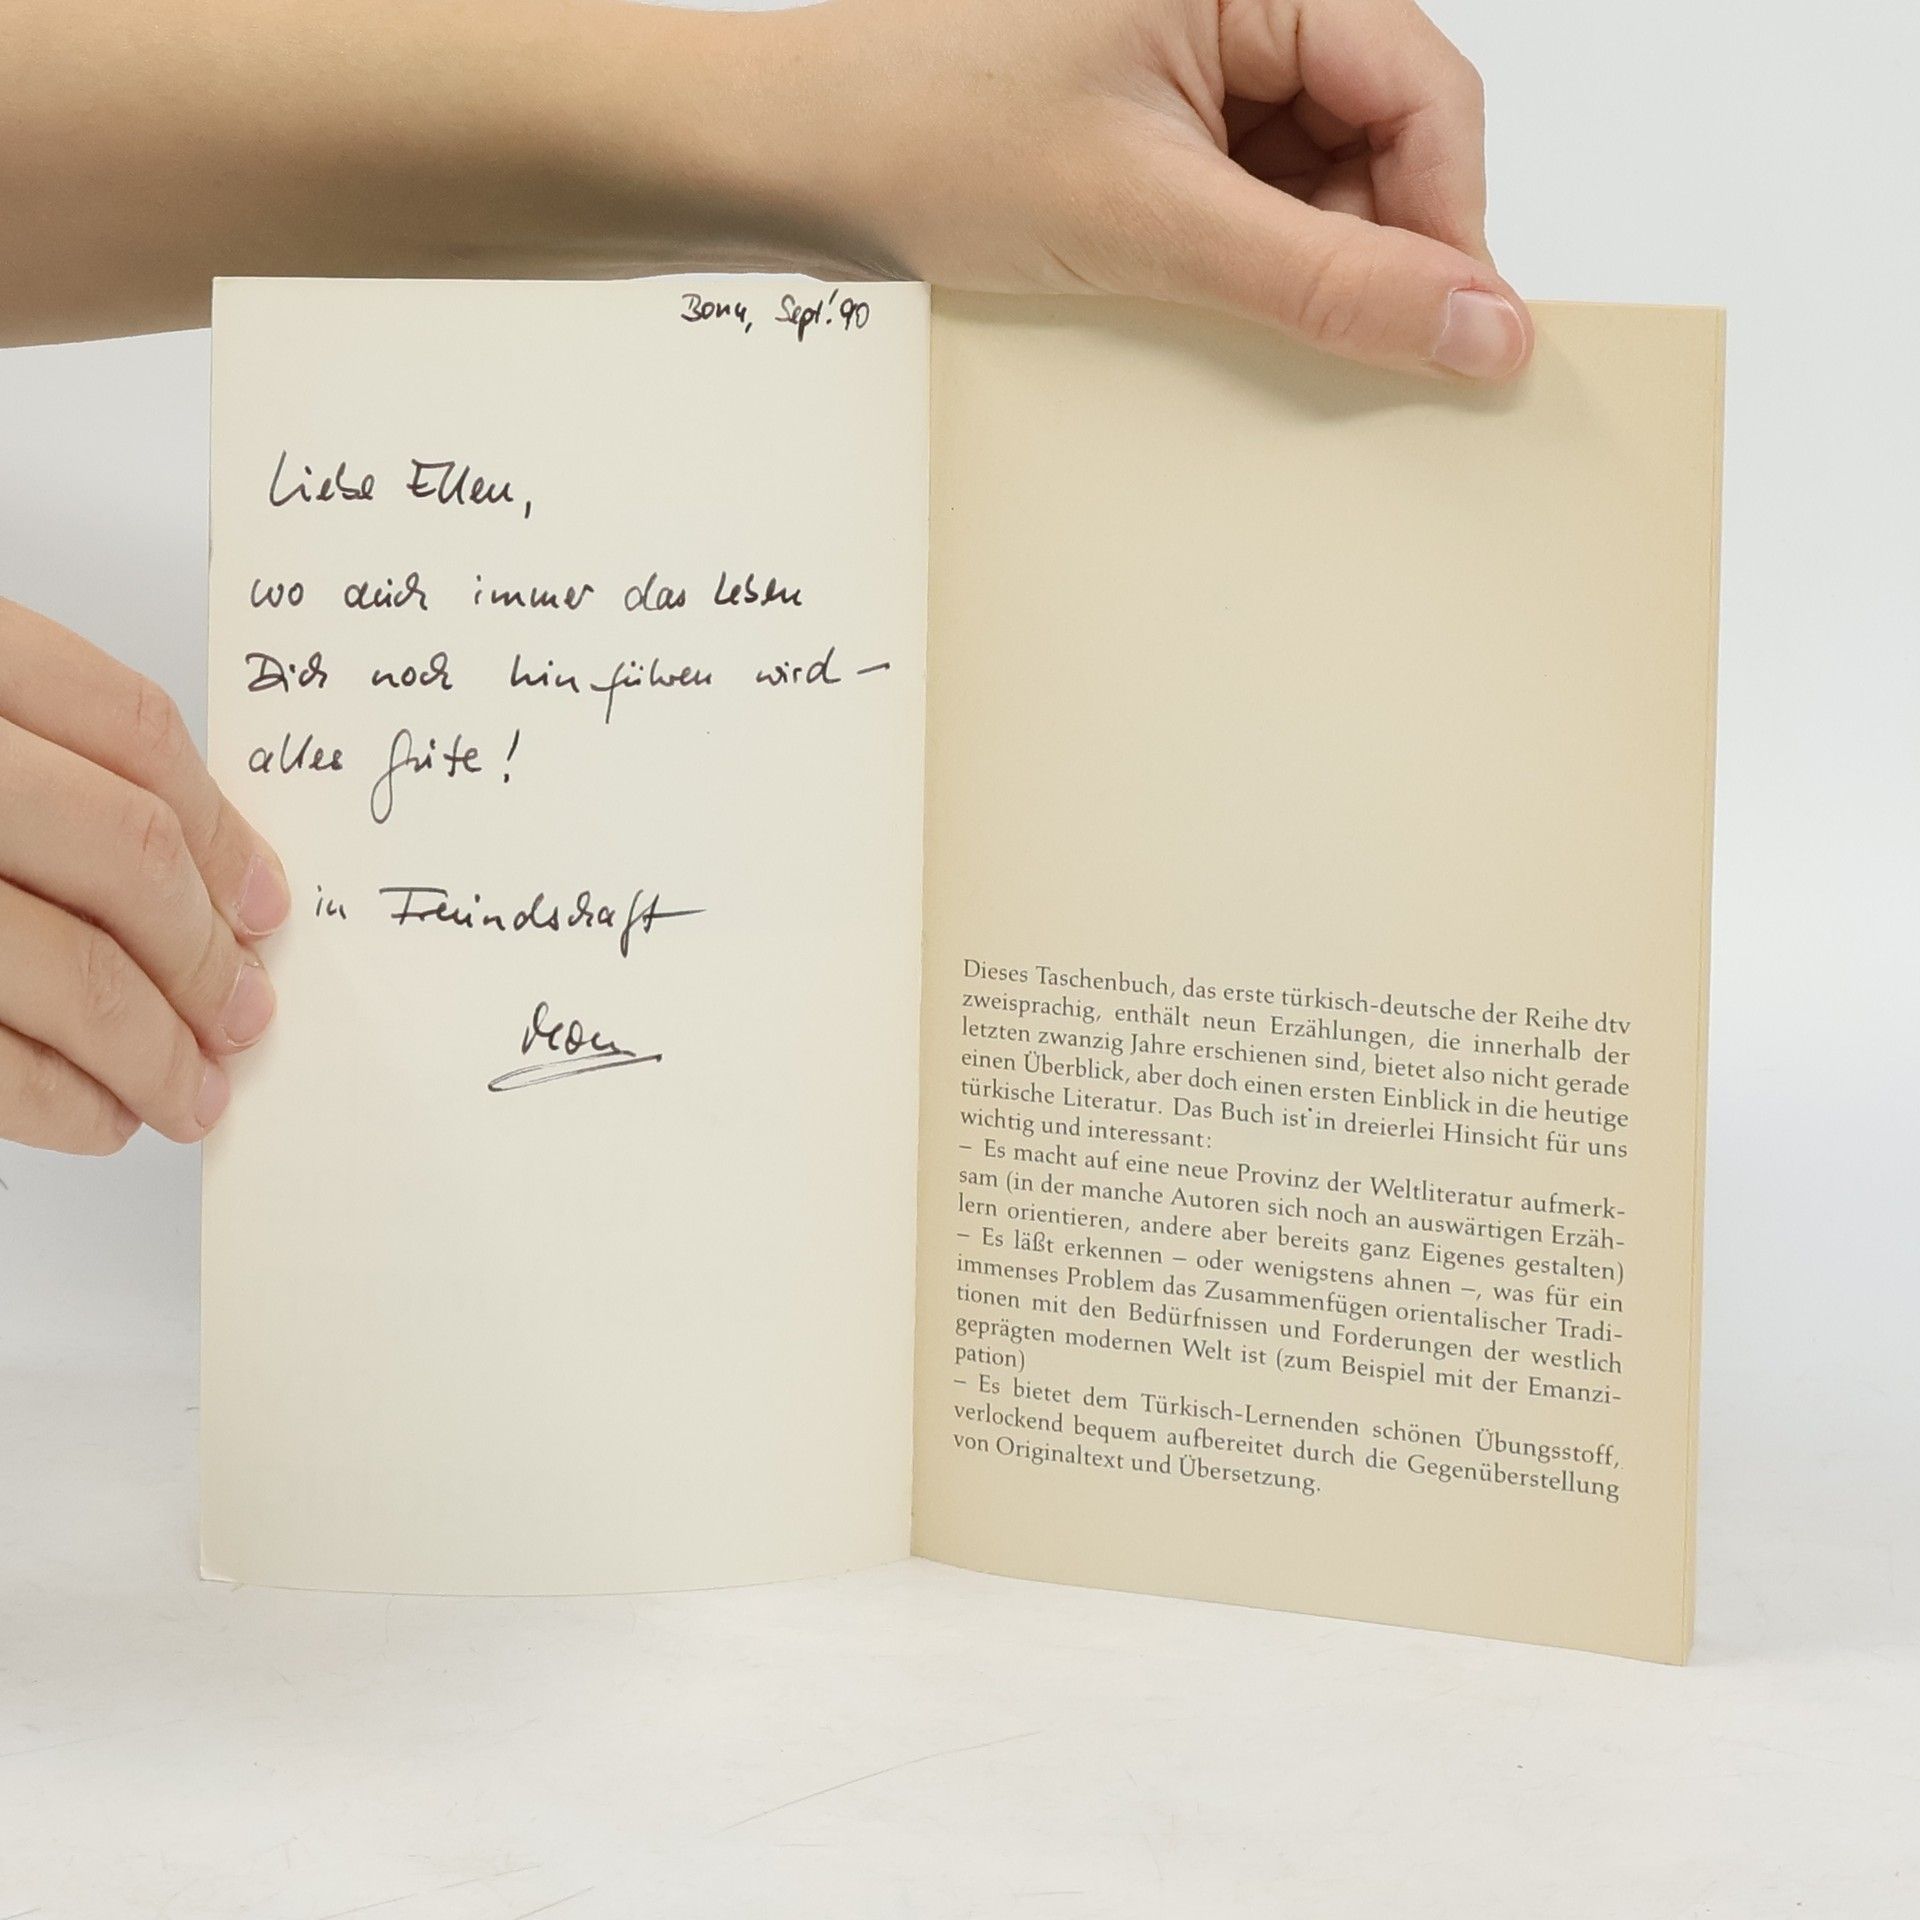 Bonn, Sept.'90
Liebe Ellen,
wo auch immer das Leben
Dich noch hinführen wird –
alles Gute!
in Freundschaft
Dieses Taschenbuch, das erste türkisch-deutsche der Reihe dtv
zweisprachig, enthält neun Erzählungen, die innerhalb der
letzten zwanzig Jahre erschienen sind, bietet also nicht gerade
einen Überblick, aber doch einen ersten Einblick in die heutige
türkische Literatur. Das Buch ist in dreierlei Hinsicht für uns
wichtig und interessant:
– Es macht auf eine neue Provinz der Weltliteratur aufmerk-
sam (in der manche Autoren sich noch an auswärtigen Erzäh-
lern orientieren, andere aber bereits ganz Eigenes gestalten)
– Es läßt erkennen – oder wenigstens ahnen –, was für ein
immenses Problem das Zusammenfügen orientalischer Tradi-
tionen mit den Bedürfnissen und Forderungen der westlich
geprägten modernen Welt ist (zum Beispiel mit der Emanzi-
pation)
– Es bietet dem Türkisch-Lernenden schönen Übungsstoff,
verlockend bequem aufbereitet durch die Gegenüberstellung
von Originaltext und Übersetzung.